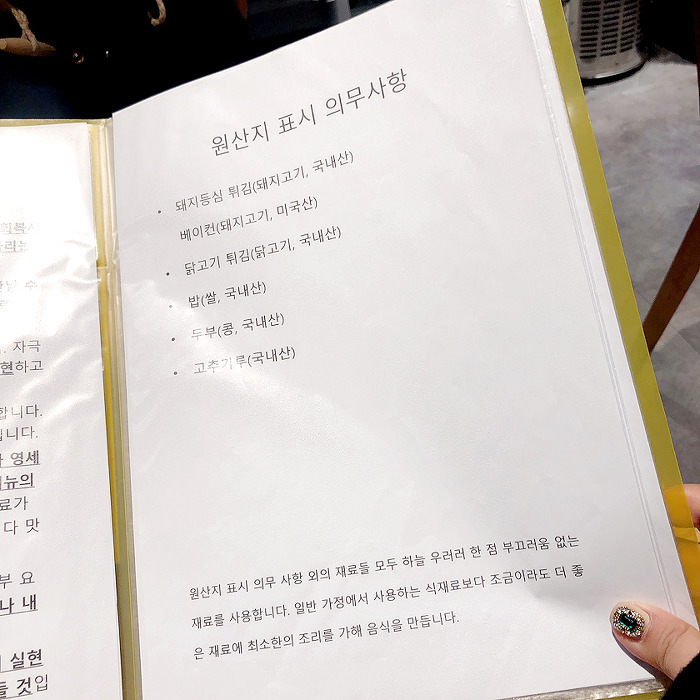 원산지 표시 의무사항
• 돼지등심 튀김(돼지고기, 국내산)
베이컨(돼지고기, 미국산)
• 닭고기 튀김(닭고기, 국내산)
• 밥(쌀, 국내산)
• 두부(콩, 국내산)
• 고추가루(국내산)
원산지 표시 의무 사항 외의 재료들 모두 하늘 우러러 한 점 부끄러움 없는
재료를 사용합니다. 일반 가정에서 사용하는 식재료보다 조금이라도 더 좋
은 재료에 최소한의 조리를 가해 음식을 만듭니다.
자극
현하고
합니다.
니다.
영세
뉴의
료가
다 맛
부 요
나 내
실현
들 것입